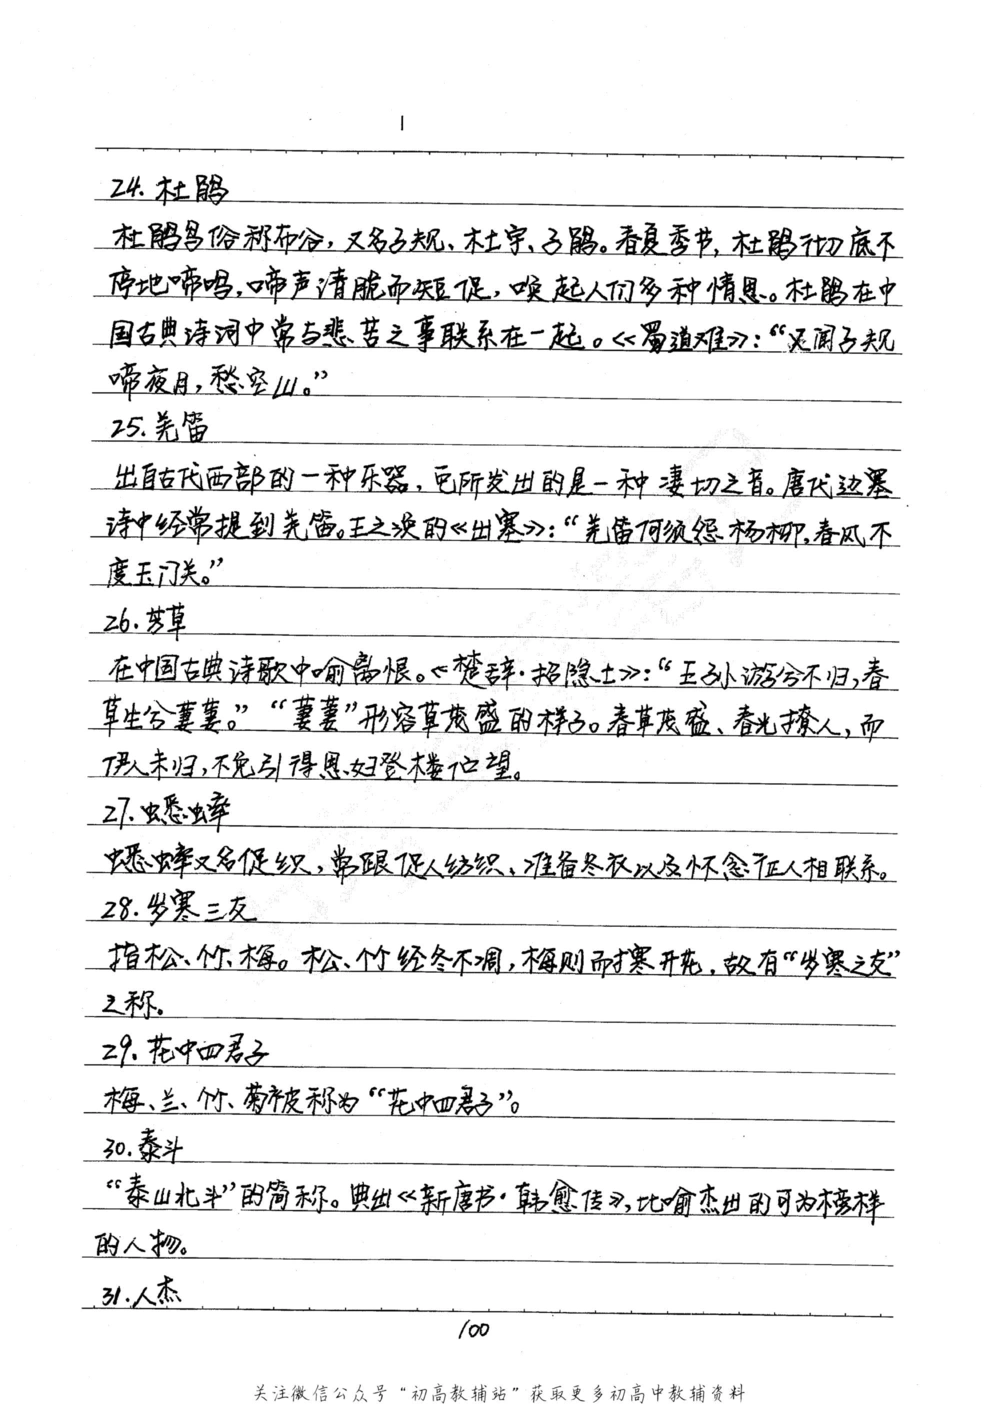 24.杜鹃
杜鹃鸟俗称布谷,又名子规、杜宇、子鹃。春夏季节,杜鹃彻底不
停地啼鸣,啼声清脆而短促,唤起人们多种情思。杜鹃在中
国古典诗词中常与悲苦之事联系在一起。《蜀道难》:“又闻子规
啼夜月,愁空山。”
25.羌笛
出自古代西部的一种乐器,它所发出的是一种凄切之音。唐代边塞
诗中经常提到羌笛。王之涣的《出塞》:“羌笛何须怨杨柳,春风不
度玉门关。”
26.芳草
在中国古典诗歌中喻离恨。《楚辞·招隐士》:“王孙游兮不归,春
草生兮萋萋。”“萋萋”形容草茂盛的样子。春草茂盛、春光撩人,而
伊人未归,不免引得思妇登楼伫望。
27.蟋蟀
蟋蟀又名促织,常跟促人纺织、准备冬衣以及怀念征人相联系。
28.岁寒三友
指松、竹、梅。松、竹经冬不凋,梅则而才寒开花,故有“岁寒之友”
之称。
29.花中四君子
梅、兰、竹、菊被称为“花中四君子”。
30.泰斗
“泰山北斗”的简称。典出《新唐书·韩愈传》,比喻杰出的可为榜样
的人物。
31.人杰
100
关注微信公众号“初高教辅站”获取更多初高中教辅资料